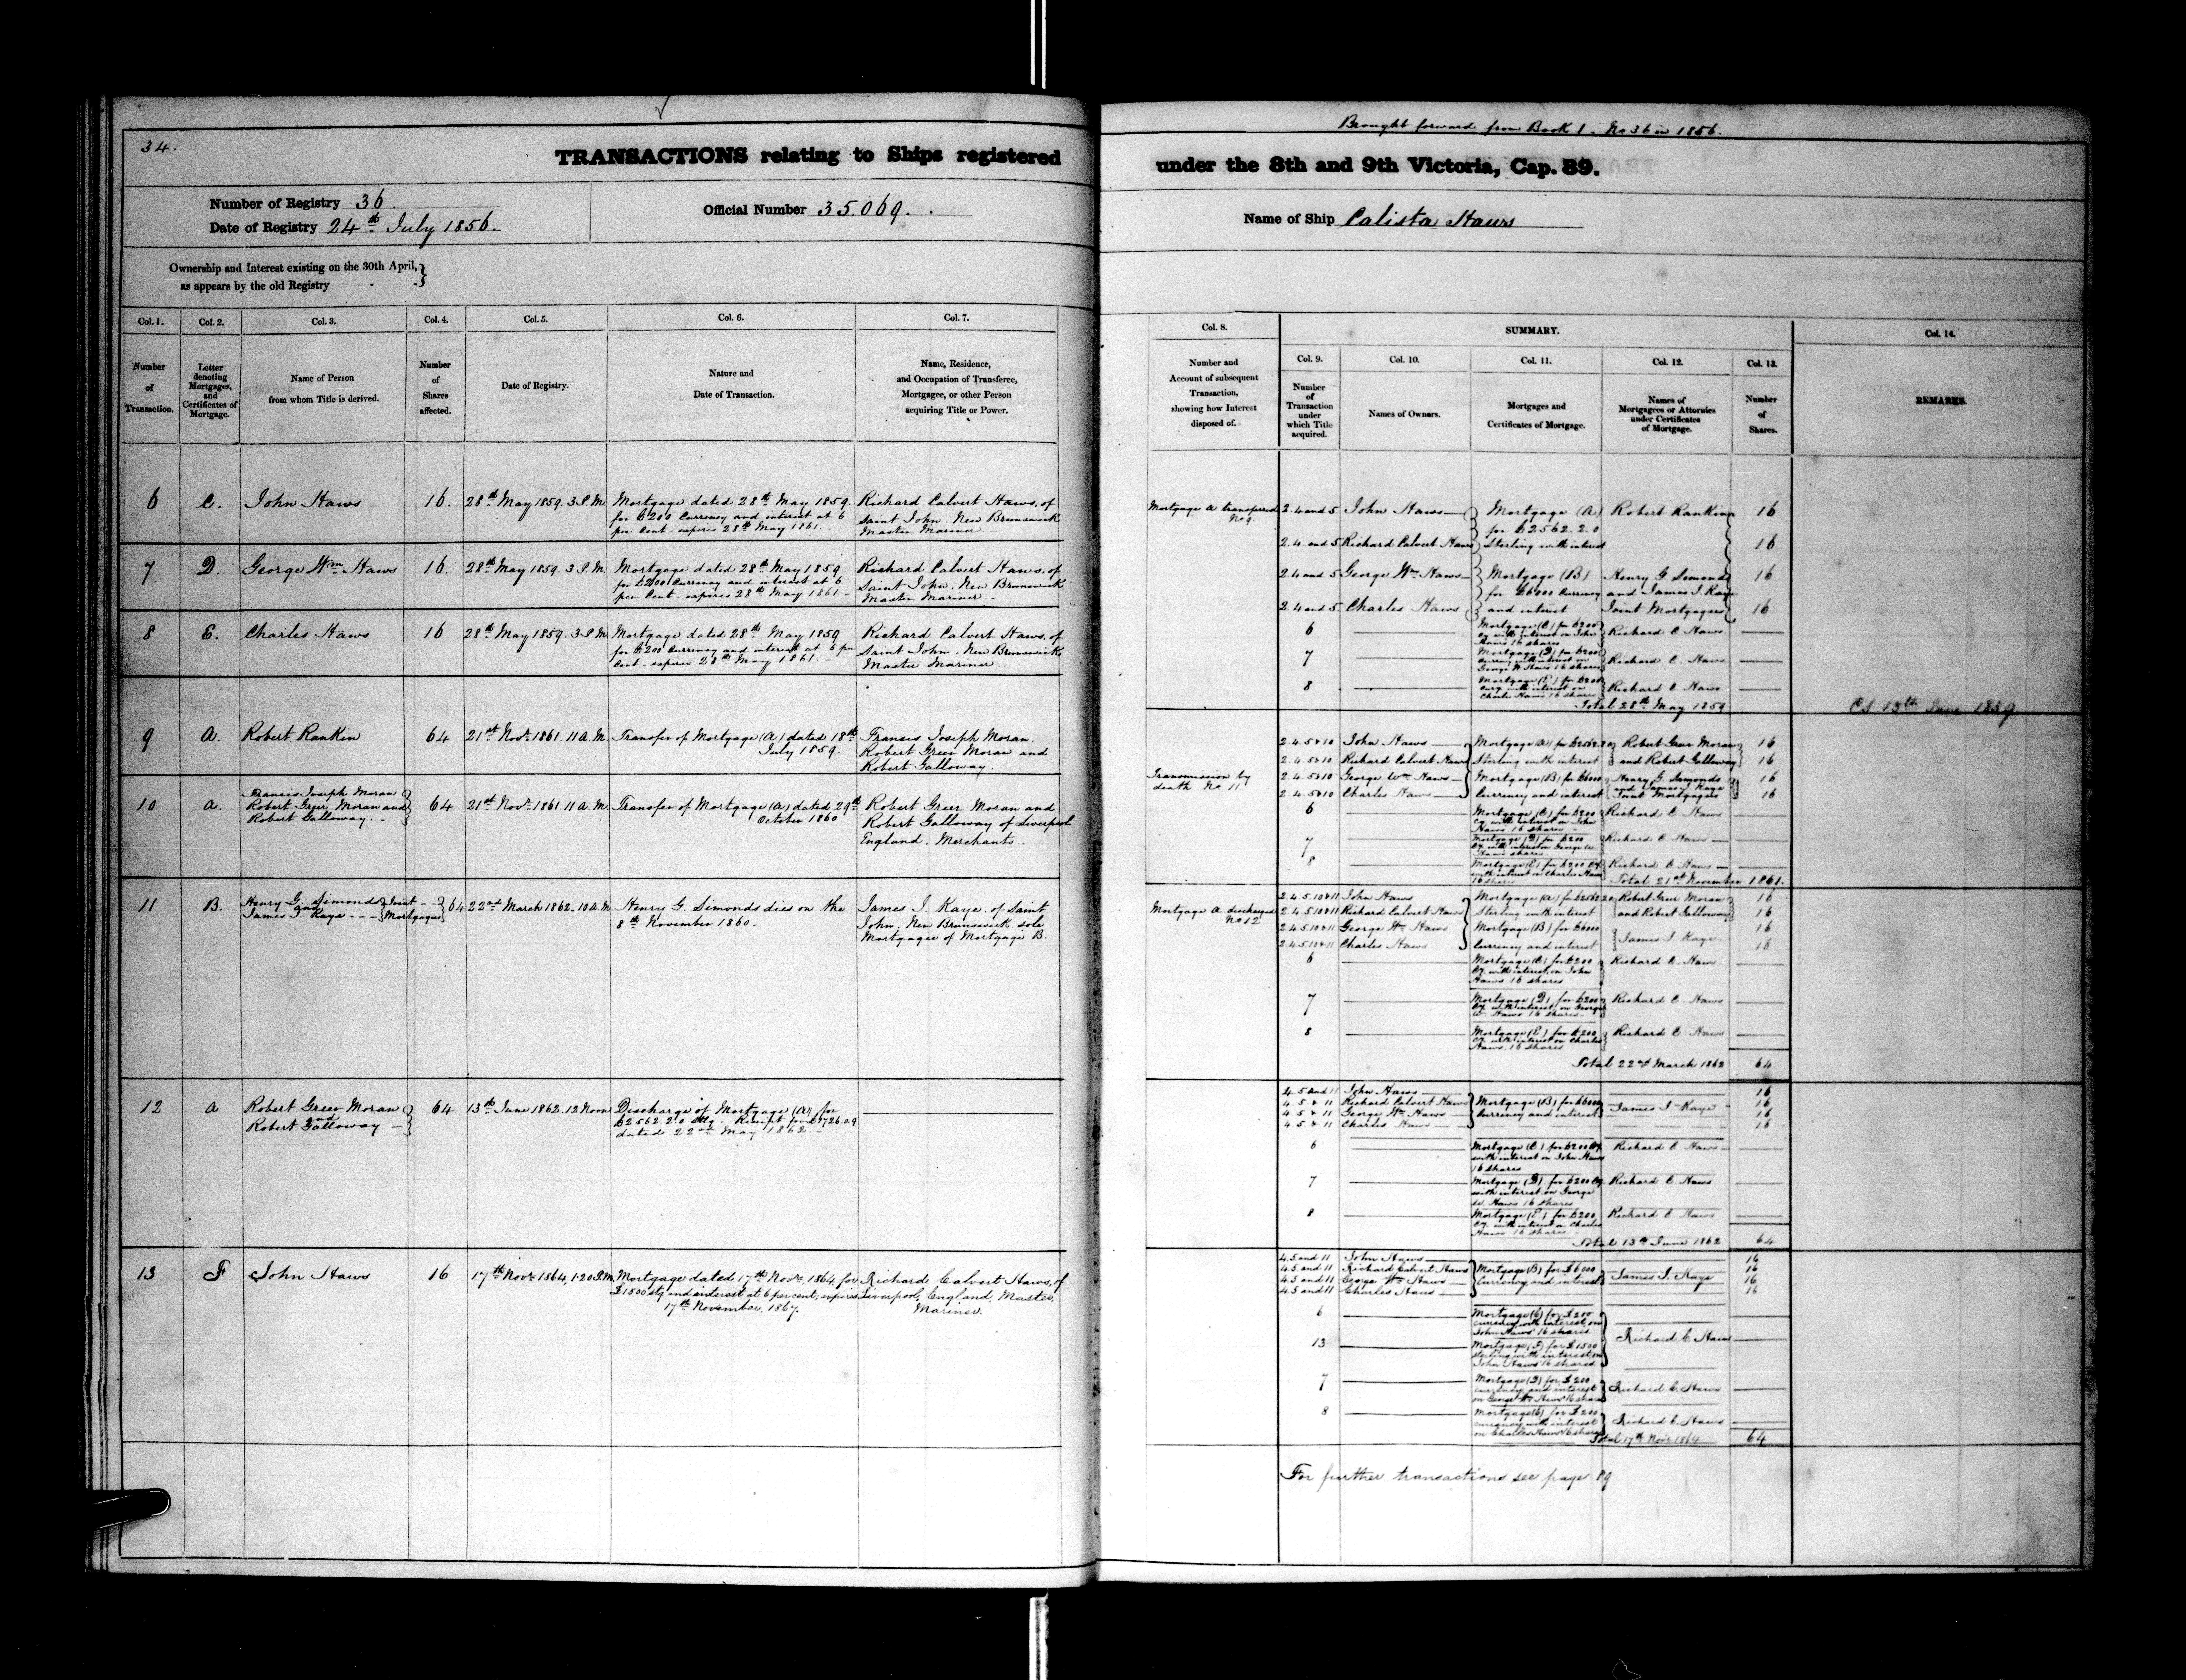 Brought forward from Book 1. No 36 in 1856.
34.
TRANSACTIONS relating to Ships registered under the 8th and 9th Victoria, Cap. 89.
Number of Registry 36.
Date of Registry 24th July 1856.
Official Number 35069.
Name of Ship Calista Haws
Ownership and Interest existing on the 30th April,
as appears by the old Registry
Col. 1. Col. 2. Col. 3. Col. 4. Col. 5. Col. 6. Col. 7.
Number of Transaction.
Letter denoting Mortgages, and Certificates of Mortgage.
Name of Person from whom Title is derived.
Number of Shares affected.
Date of Registry.
Nature and Date of Transaction.
Name, Residence, and Occupation of Transferee, Mortgagee, or other Person acquiring Title or Power.
6 C. John Haws 16. 28th May 1859. 3 P.M. Mortgage dated 28th May 1859. Richard Calvert Haws, of
for £200 Currency and interest at 6 Saint John. New Brunswick
per Cent. expires 28th May 1861. Master Mariner
7 D. George Wm Haws 16. 28th May 1859. 3 P.M. Mortgage dated 28th May 1859 Richard Calvert Haws. of
for £200 Currency and interest at 6 Saint John. New Brunswick
per Cent. expires 28th May 1861. Master Mariner.
8 E. Charles Haws 16 28th May 1859. 3 P.M. Mortgage dated 28th May 1859 Richard Calvert Haws, of
for £200 Currency and interest at 6 per Saint John. New Brunswick
Cent. expires 28th May 1861. Master Mariner
9 A. Robert Rankin 64 21st Novr 1861. 11 A.M. Transfer of Mortgage (A) dated 18th Francis Joseph Moran.
July 1859. Robert Greer Moran and
Robert Galloway.
10 a. Francis Joseph Moran
Robert Greer Moran and 64 21st Novr 1861. 11 A.M. Transfer of Mortgage (A) dated 29th Robert Greer Moran and
Robert Galloway. October 1860. Robert Galloway of Liverpool
England. Merchants.
11 B. Henry G. Simonds and Joint 64 22nd March 1862. 10 A.M. Henry G. Simonds dies on the James I. Kaye. of Saint
James I. Kaye Mortgages 8th November 1860. John, New Brunswick sole
Mortgagee of Mortgage B.
12 a Robert Greer Moran 64 13th June 1862. 12 Noon Discharge of Mortgage (A) for
and £2562.2.0 Stg. Receipt for £1726.0.9
Robert Galloway dated 22nd May 1862.
13 F John Haws 16 17th Novr 1864, 1.20 P.M. Mortgage dated 17th Novr. 1864, for Richard Calvert Haws, of
£1500 stg and interest at 6 per cent; expires Liverpool, England, Master
17th November, 1867. Mariner.
Col. 8.
Number and Account of subsequent Transaction, showing how Interest disposed of.
SUMMARY.
Col. 9. Col. 10. Col. 11. Col. 12. Col. 13. Col. 14.
Number of Transaction under which Title acquired.
Names of Owners.
Mortgages and Certificates of Mortgage.
Names of Mortgagees or Attornies under Certificates of Mortgage.
Number of Shares.
REMARKS.
Mortgage A transferred 2.4 and 5 John Haws Mortgage (A) Robert Rankin 16
No 9. for £2562.2.0
2.4. and 5 Richard Calvert Haws Sterling with interest 16
2.4 and 5 George Wm Haws Mortgage (B) Henry G Simonds 16
for £6000 Currency and James I Kaye
2.4 and 5 Charles Haws and interest Joint Mortgagees 16
6 Mortgage (C) for £200
Cy with interest on John Richard C. Haws
Haws 16 shares
7 Mortgage (D) for £200
Currency with interest on Richard C. Haws
George W Haws 16 shares
8 Mortgage (E) for £200
Curcy. with interest on Richard C Haws
Charles Haws 16 shares
Total 28th May 1859
CS 13th June 1859
2.4.5&10 John Haws Mortgage (A) for £2562.20 Robert Greer Moran 16
2.4.5&10 Richard Calvert Haws Sterling with interest and Robert Galloway 16
Transmission by 2.4.5&10 George Wm Haws Mortgage (B) for £6000 Henry G. Simonds 16
death No 11. and James I Kaye
2.4.5&10 Charles Haws Currency and interest Joint Mortgagees 16
6 Mortgage (C) for £200 Richard C. Haws
Cy with interest on John
Haws 16 shares
7 Mortgage (D) for £200 Richard C. Haws
Cy. with interest on George W.
Haws shares
8 Mortgage (E) for £200 Cy. Richard C. Haws
with interest on Charles Haws
16 shares Total 21st November 1861.
Mortgage A discharged 2.4.5.10&11 John Haws Mortgage (A) for £2562.20 Robert Greer Moran 16
No 12. 2.4.5.10&11 Richard Calvert Haws Sterling with interest and Robert Galloway 16
2.4.5.10&11 George Wm Haws Mortgage (B) for £6000 16
2.4.5.10&11 Charles Haws Currency and interest James I. Kaye 16
6 Mortgage (C) for £200 Richard C. Haws
Cy. with interest, on John
Haws 16 shares
7 Mortgage (D) for £200 Richard C Haws
Cy with interest, on George
W. Haws 16 shares
8 Mortgage (E) for £200 Richard C Haws
Cy. with interest on Charles
Haws. 16 shares
Total 22nd March 1862 64
4.5 and 11 John Haws 16
4.5. & 11 Richard Calvert Haws Mortgage (B) for £6000 16
4.5. & 11 George Wm Haws Currency and interest James I Kaye 16
4.5. & 11 Charles Haws 16
6 Mortgage (C) for £200 Cy. Richard C Haws
with interest on John Haws
16 shares
7 Mortgage (D) for £200 Cy. Richard C Haws
with interest on George
W. Haws 16 shares
8 Mortgage (E) for £200 Richard C Haws
Cy. with interest on Charles
Haws 16 shares
Total 13th June 1862 64
4.5 and 11 John Haws 16
4.5 and 11 Richard Calvert Haws Mortgage (B) for £6000 16
4.5 and 11 George Wm Haws Currency and interest James I. Kaye 16
4.5 and 11 Charles Haws 16
6 Mortgage (C) for £200
currency with interest on
John Haws' 16 shares Richard C. Haws
13 Mortgage (F) for £1500
sterling with interest on
John Haws 16 shares
7 Mortgage (D) for £200
currency and interest Richard C. Haws
on George Wm Haws' 16 shares
8 Mortgage (E) for £200
currency with interest Richard C. Haws
on Charles Haws' 16 shares
Total 17th Novr 1864 64
For further transactions see page 89